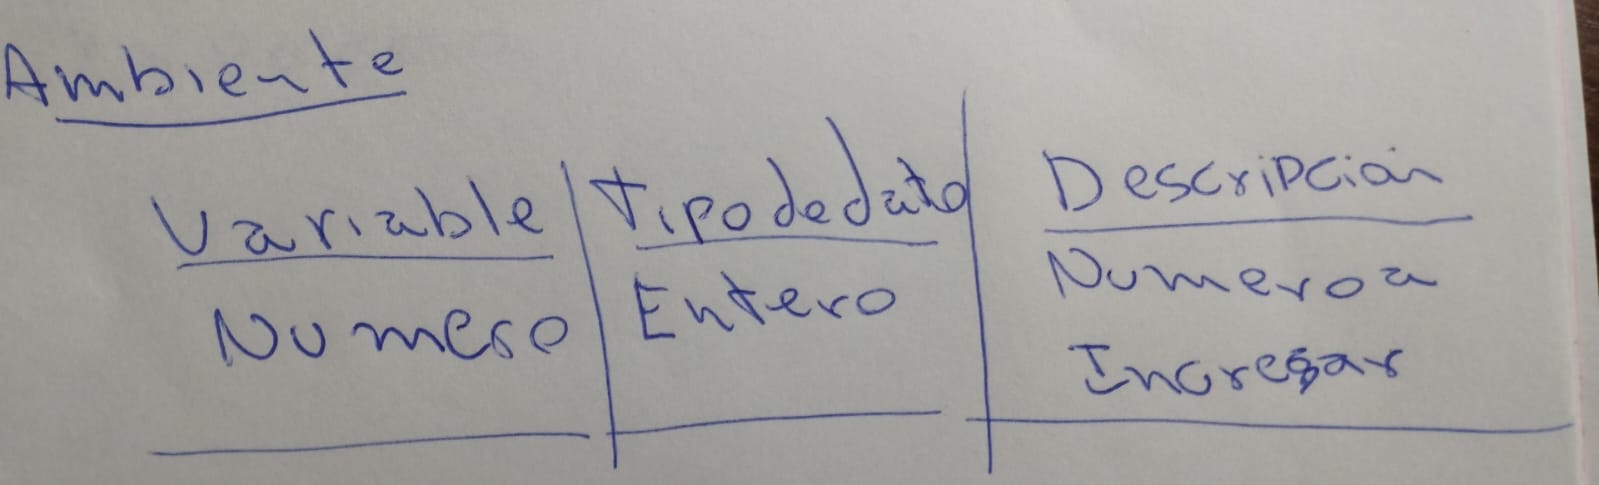 Ambiente
Variable Tipo de dato Descripción
Numero Entero Numero a
Ingresar